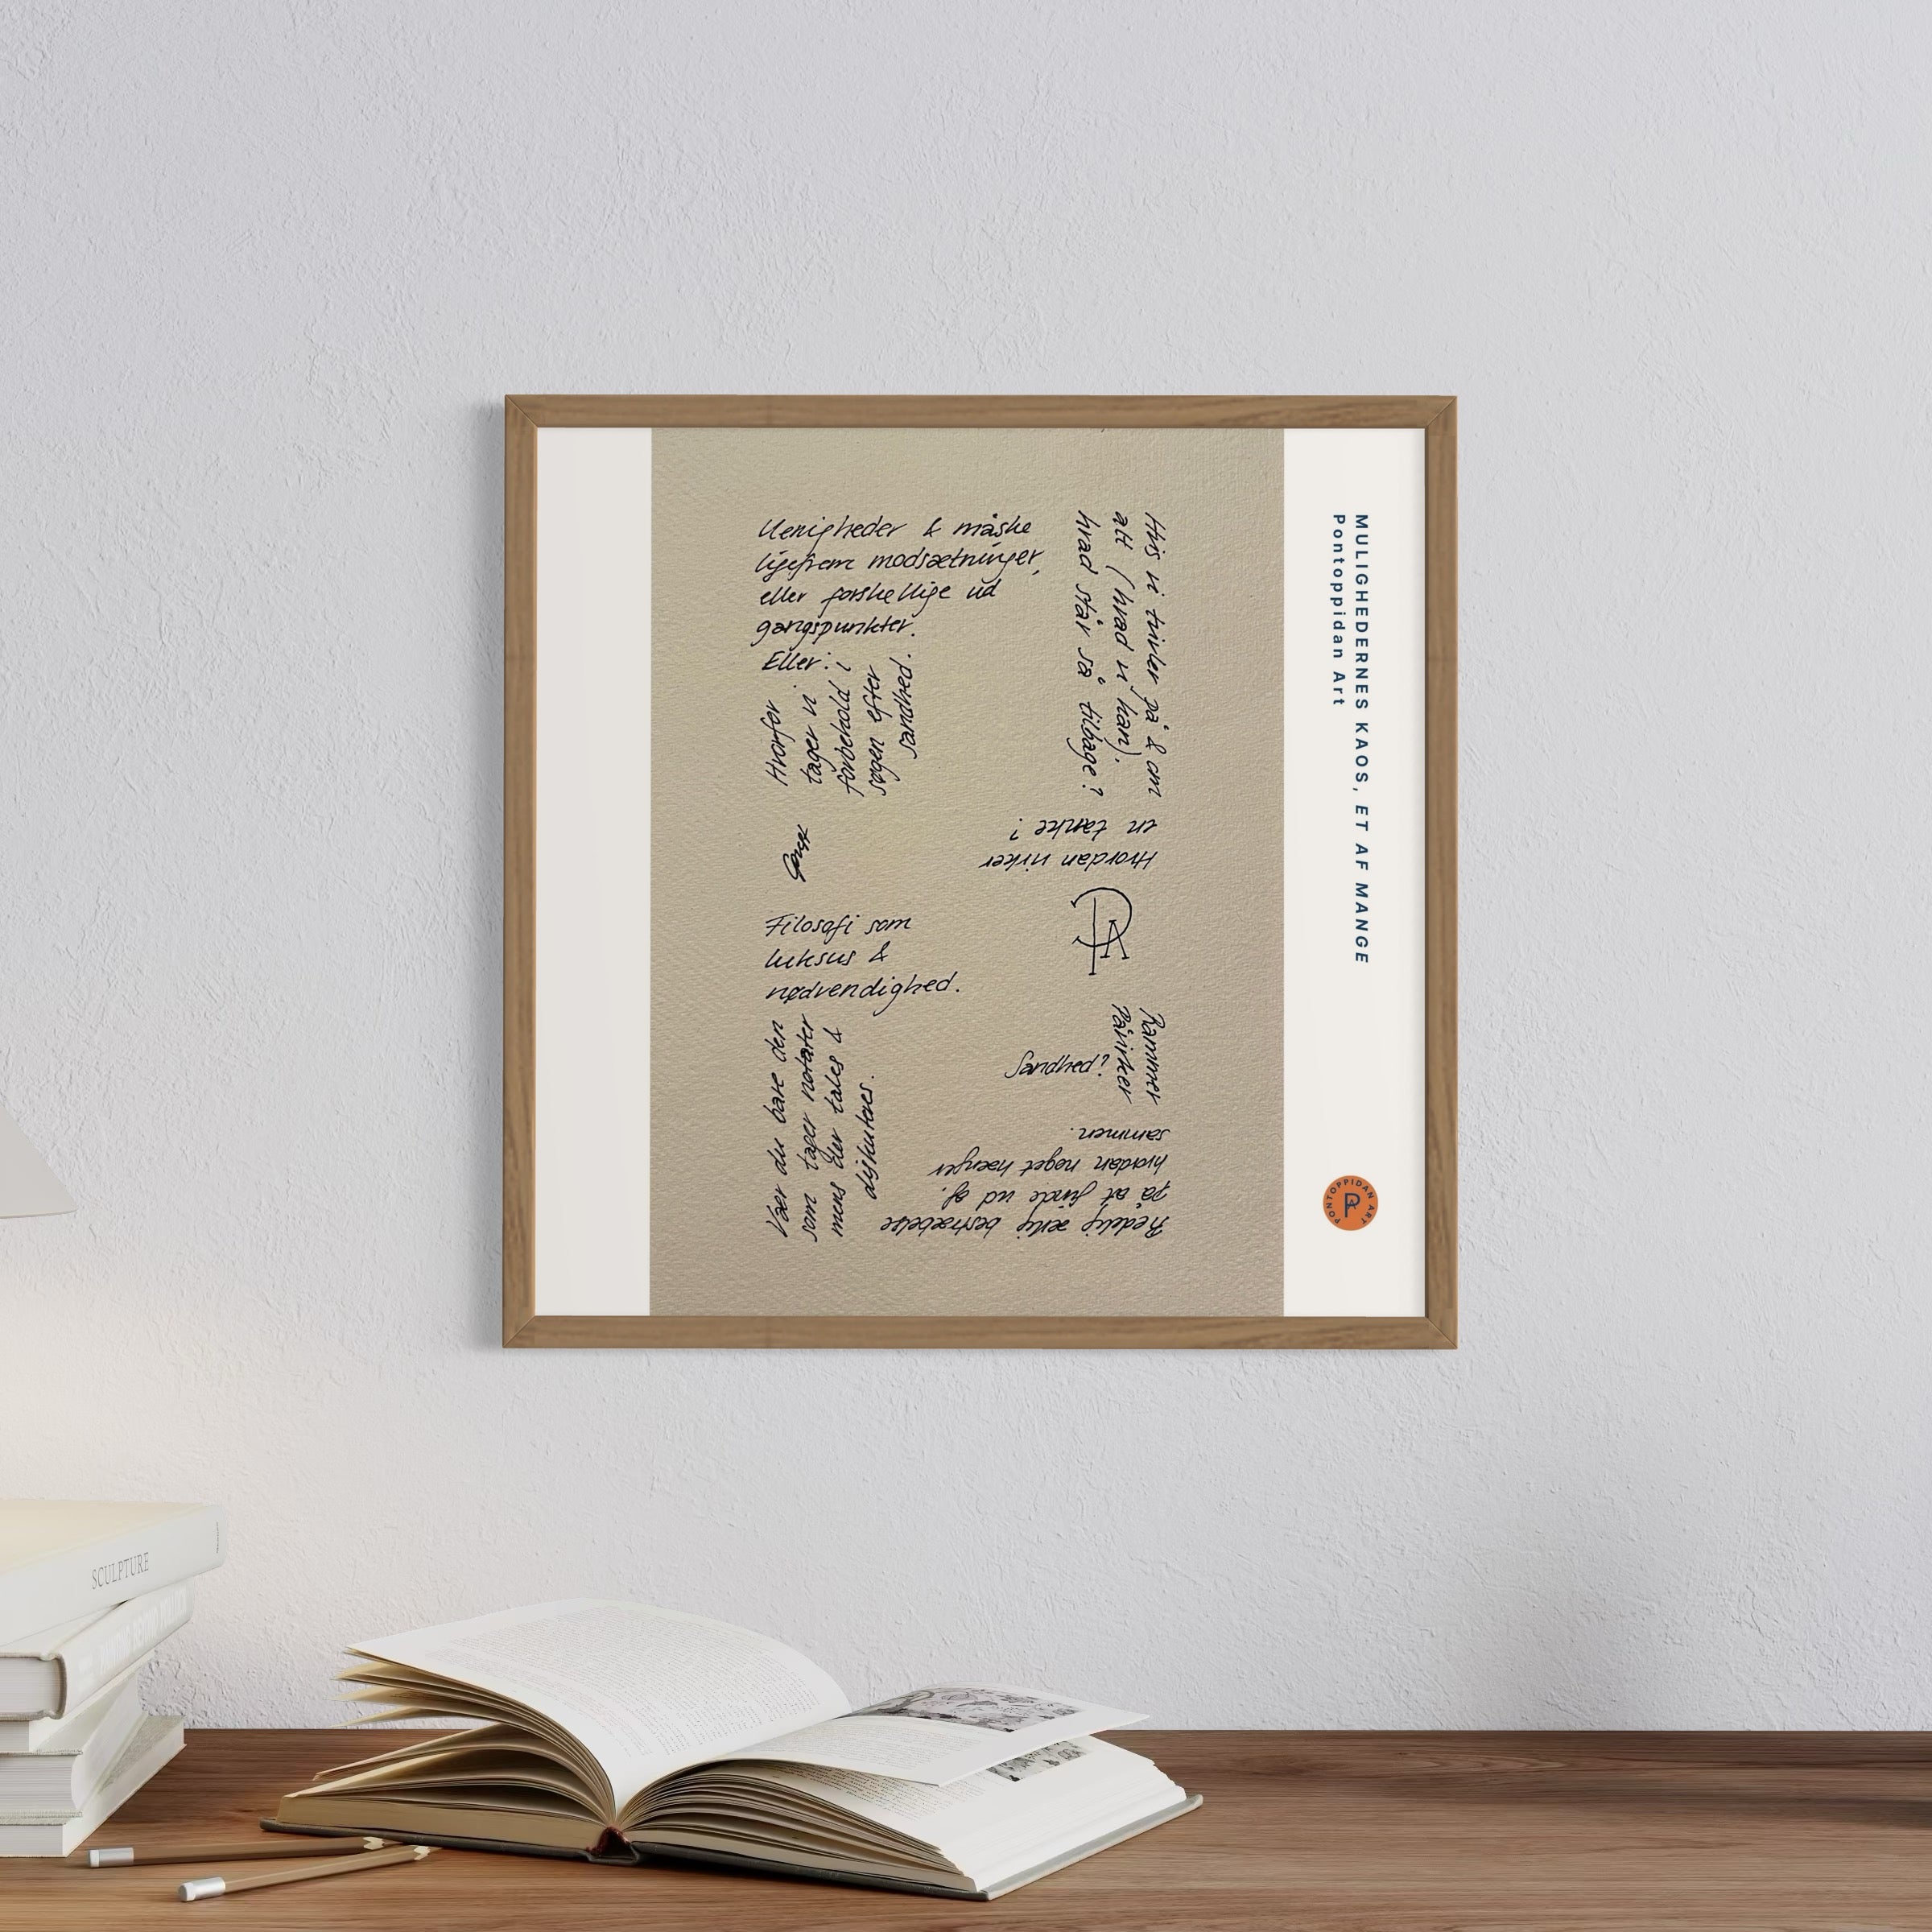 Uenigheder & måske
ligefrem modsætninger,
eller forskellige ud
gangspunkter.
Eller:
Hvorfor
tager vi
forbehold i
søgen efter
sandhed.
Hvis vi tvivler på & om
alt (hvad vi kan).
hvad står så tilbage?
Hvordan virker
en tanke?
Filosofi som
luksus &
nødvendighed.
Vær du bare den
som tager notater
mens der tales &
diskuteres.
Rammer
Påvirker
Sandhed?
Redelig ærlig bestræbelse
på at finde ud af.
hvordan noget hænger
sammen.
MULIGHEDERNES KAOS, ET AF MANGE
Pontoppidan Art
PONTOPPIDAN ART
SCULPTURE